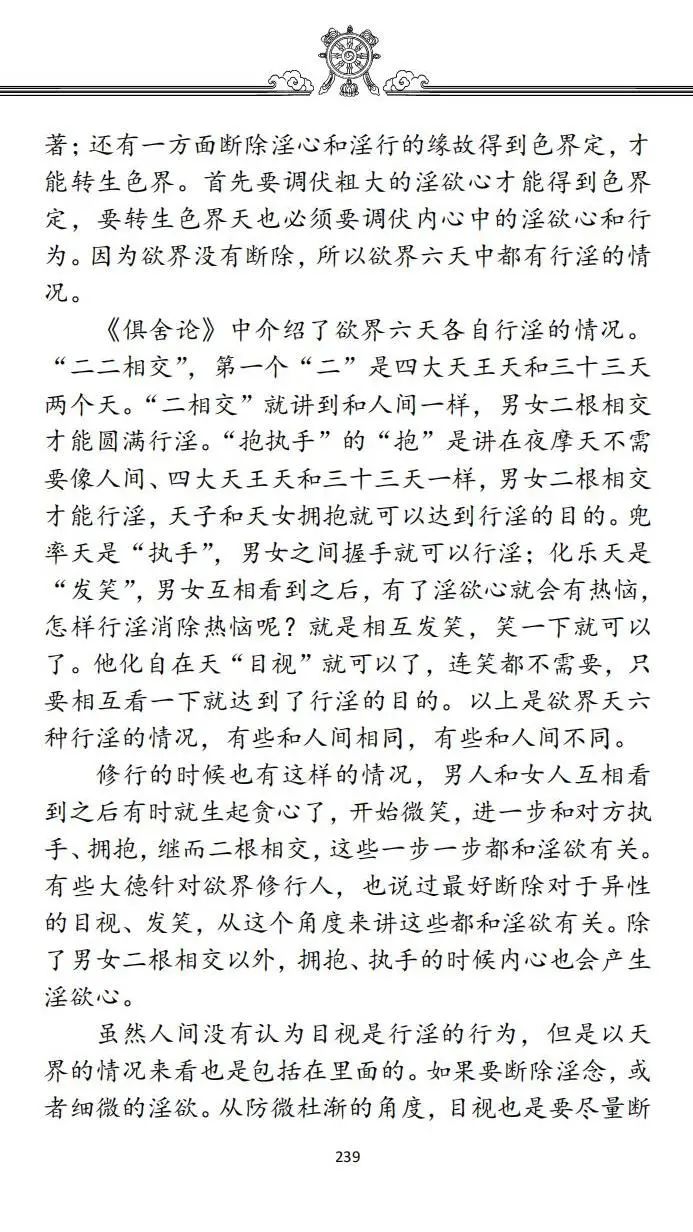 著；还有一方面断除淫心和淫行的缘故得到色界定，才
能转生色界。首先要调伏粗大的淫欲心才能得到色界
定，要转生色界天也必须要调伏内心中的淫欲心和行
为。因为欲界没有断除，所以欲界六天中都有行淫的情
况。
《俱舍论》中介绍了欲界六天各自行淫的情况。
“二二相交”，第一个“二”是四大天王天和三十三天
两个天。“二相交”就讲到和人间一样，男女二根相交
才能圆满行淫。“抱执手”的“抱”是讲在夜摩天不需
要像人间、四大天王天和三十三天一样，男女二根相交
才能行淫，天子和天女拥抱就可以达到行淫的目的。兜
率天是“执手”，男女之间握手就可以行淫；化乐天是
“发笑”，男女互相看到之后，有了淫欲心就会有热恼，
怎样行淫消除热恼呢？就是相互发笑，笑一下就可以
了。他化自在天“目视”就可以了，连笑都不需要，只
要相互看一下就达到了行淫的目的。以上是欲界天六
种行淫的情况，有些和人间相同，有些和人间不同。
修行的时候也有这样的情况，男人和女人互相看
到之后有时就生起贪心了，开始微笑，进一步和对方执
手、拥抱，继而二根相交，这些一步一步都和淫欲有关。
有些大德针对欲界修行人，也说过最好断除对于异性
的目视、发笑，从这个角度来讲这些都和淫欲有关。除
了男女二根相交以外，拥抱、执手的时候内心也会产生
淫欲心。
虽然人间没有认为目视是行淫的行为，但是以天
界的情况来看也是包括在里面的。如果要断除淫念，或
者细微的淫欲。从防微杜渐的角度，目视也是要尽量断
239